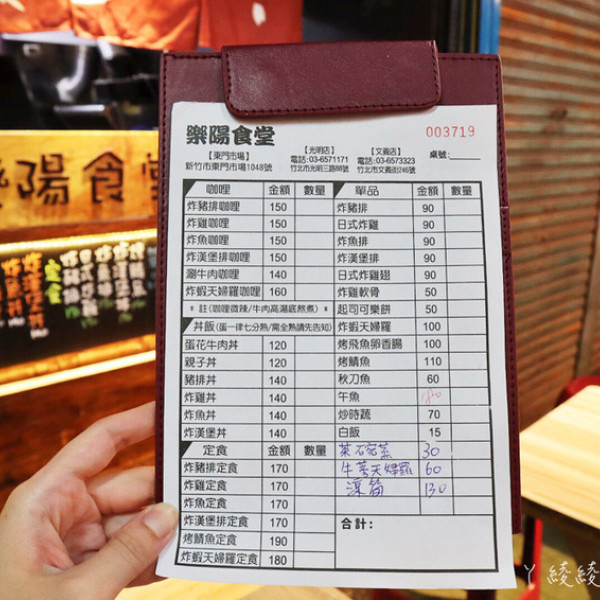 樂陽食堂
003719
【東門市場】
新竹市東門市場1048號
【光明店】
電話:03-6571171
竹北市光明三路88號
【文義店】
電話:03-6573323
竹北市文義街246號
桌號:
咖哩 金額 數量
炸豬排咖哩 150
炸雞咖哩 150
炸魚咖哩 150
炸漢堡排咖哩 150
涮牛肉咖哩 140
炸蝦天婦羅咖哩 160
＊註(咖哩微辣/牛肉高湯底熬煮)＊
丼飯(蛋一律七分熟/需全熟請先告知)
蛋花牛肉丼 120
親子丼 120
豬排丼 140
炸雞丼 140
炸魚丼 140
炸漢堡丼 140
定食 金額 數量
炸豬排定食 170
炸雞定食 170
炸魚定食 170
炸漢堡排定食 170
烤鯖魚定食 190
炸蝦天婦羅定食 180
單品 金額 數量
炸豬排 90
日式炸雞 90
炸魚排 90
炸漢堡排 90
日式炸雞翅 90
炸雞軟骨 50
起司可樂餅 50
炸蝦天婦羅 100
烤飛魚卵香腸 100
烤鯖魚 110
秋刀魚 60
午魚
炒時蔬 70
白飯 15
茶碗蒸 30
牛蒡天婦羅 60
130
合計:
陽食堂
定食
ㄚ綾綾